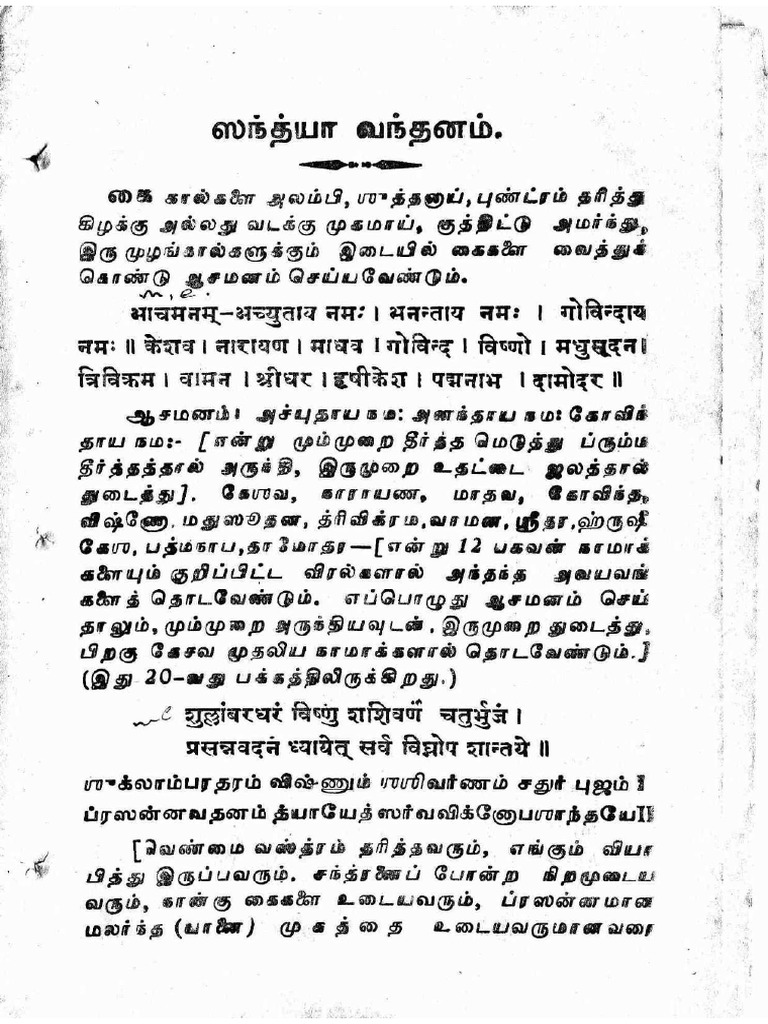 ஸந்த்யா வந்தனம்.
கை கால்களை அலம்பி, ஶுத்தனாய், புண்ட்ரம் தரித்து
கிழக்கு அல்லது வடக்கு முகமாய், குத்திட்டு அமர்ந்து,
இரு முழங்கால்களுக்கும் இடையில் கைகளை வைத்துக்
கொண்டு ஆசமனம் செய்யவேண்டும்.
आचमनम्-अच्युताय नमः। अनन्ताय नमः । गोविन्दाय
नमः॥ केशव। नारायण। माधव ।गोविन्द। विष्णो। मधुसूदन।
त्रिविक्रम। वामन। श्रीधर। हृषीकेश। पद्मनाभ ।दामोदर॥
ஆசமனம்: அச்யுதாய நம: அனந்தாய நம: கோவிந்
தாய நம:- [என்று மும்முறை தீர்த்த மெடுத்து ப்ரும்ம
தீர்த்தத்தால் அருந்தி, இருமுறை உதட்டை ஜலத்தால்
துடைத்து]. கேஶவ, நாராயண, மாதவ, கோவிந்த,
விஷ்ணோ, மதுஸூதன, த்ரிவிக்ரம, வாமன, ஸ்ரீதர, ஹ்ருஷீ
கேஶ, பத்மநாப, தாமோதர—[என்று 12 பகவன் நாமாக்
களையும் குறிப்பிட்ட விரல்களால் அந்தந்த அவயவங்
களைத் தொடவேண்டும். எப்பொழுது ஆசமனம் செய்
தாலும், மும்முறை அருந்தியவுடன், இருமுறை துடைத்து,
பிறகு கேசவ முதலிய நாமாக்களால் தொடவேண்டும்.]
(இது 20-வது பக்கத்திலிருக்கிறது.)
शुल्लांबरधरं विष्णुं शशिवर्णं चतुर्भुजं।
प्रसन्नवदनं ध्यायेत् सर्व विघ्नोप शान्तये॥
ஶுக்லாம்பரதரம் விஷ்ணும் ஶஶிவர்ணம் சதுர் புஜம் |
ப்ரஸன்னவதனம் த்யாயேத் ஸர்வவிக்னோபஶாந்தயே||
[வெண்மை வஸ்த்ரம் தரித்தவரும், எங்கும் வியா
பித்து இருப்பவரும். சந்த்ரனைப் போன்ற நிறமுடைய
வரும், நான்கு கைகளை உடையவரும், ப்ரஸன்னமான
மலர்ந்த (யானை) முகத்தை உடையவருமானவரை